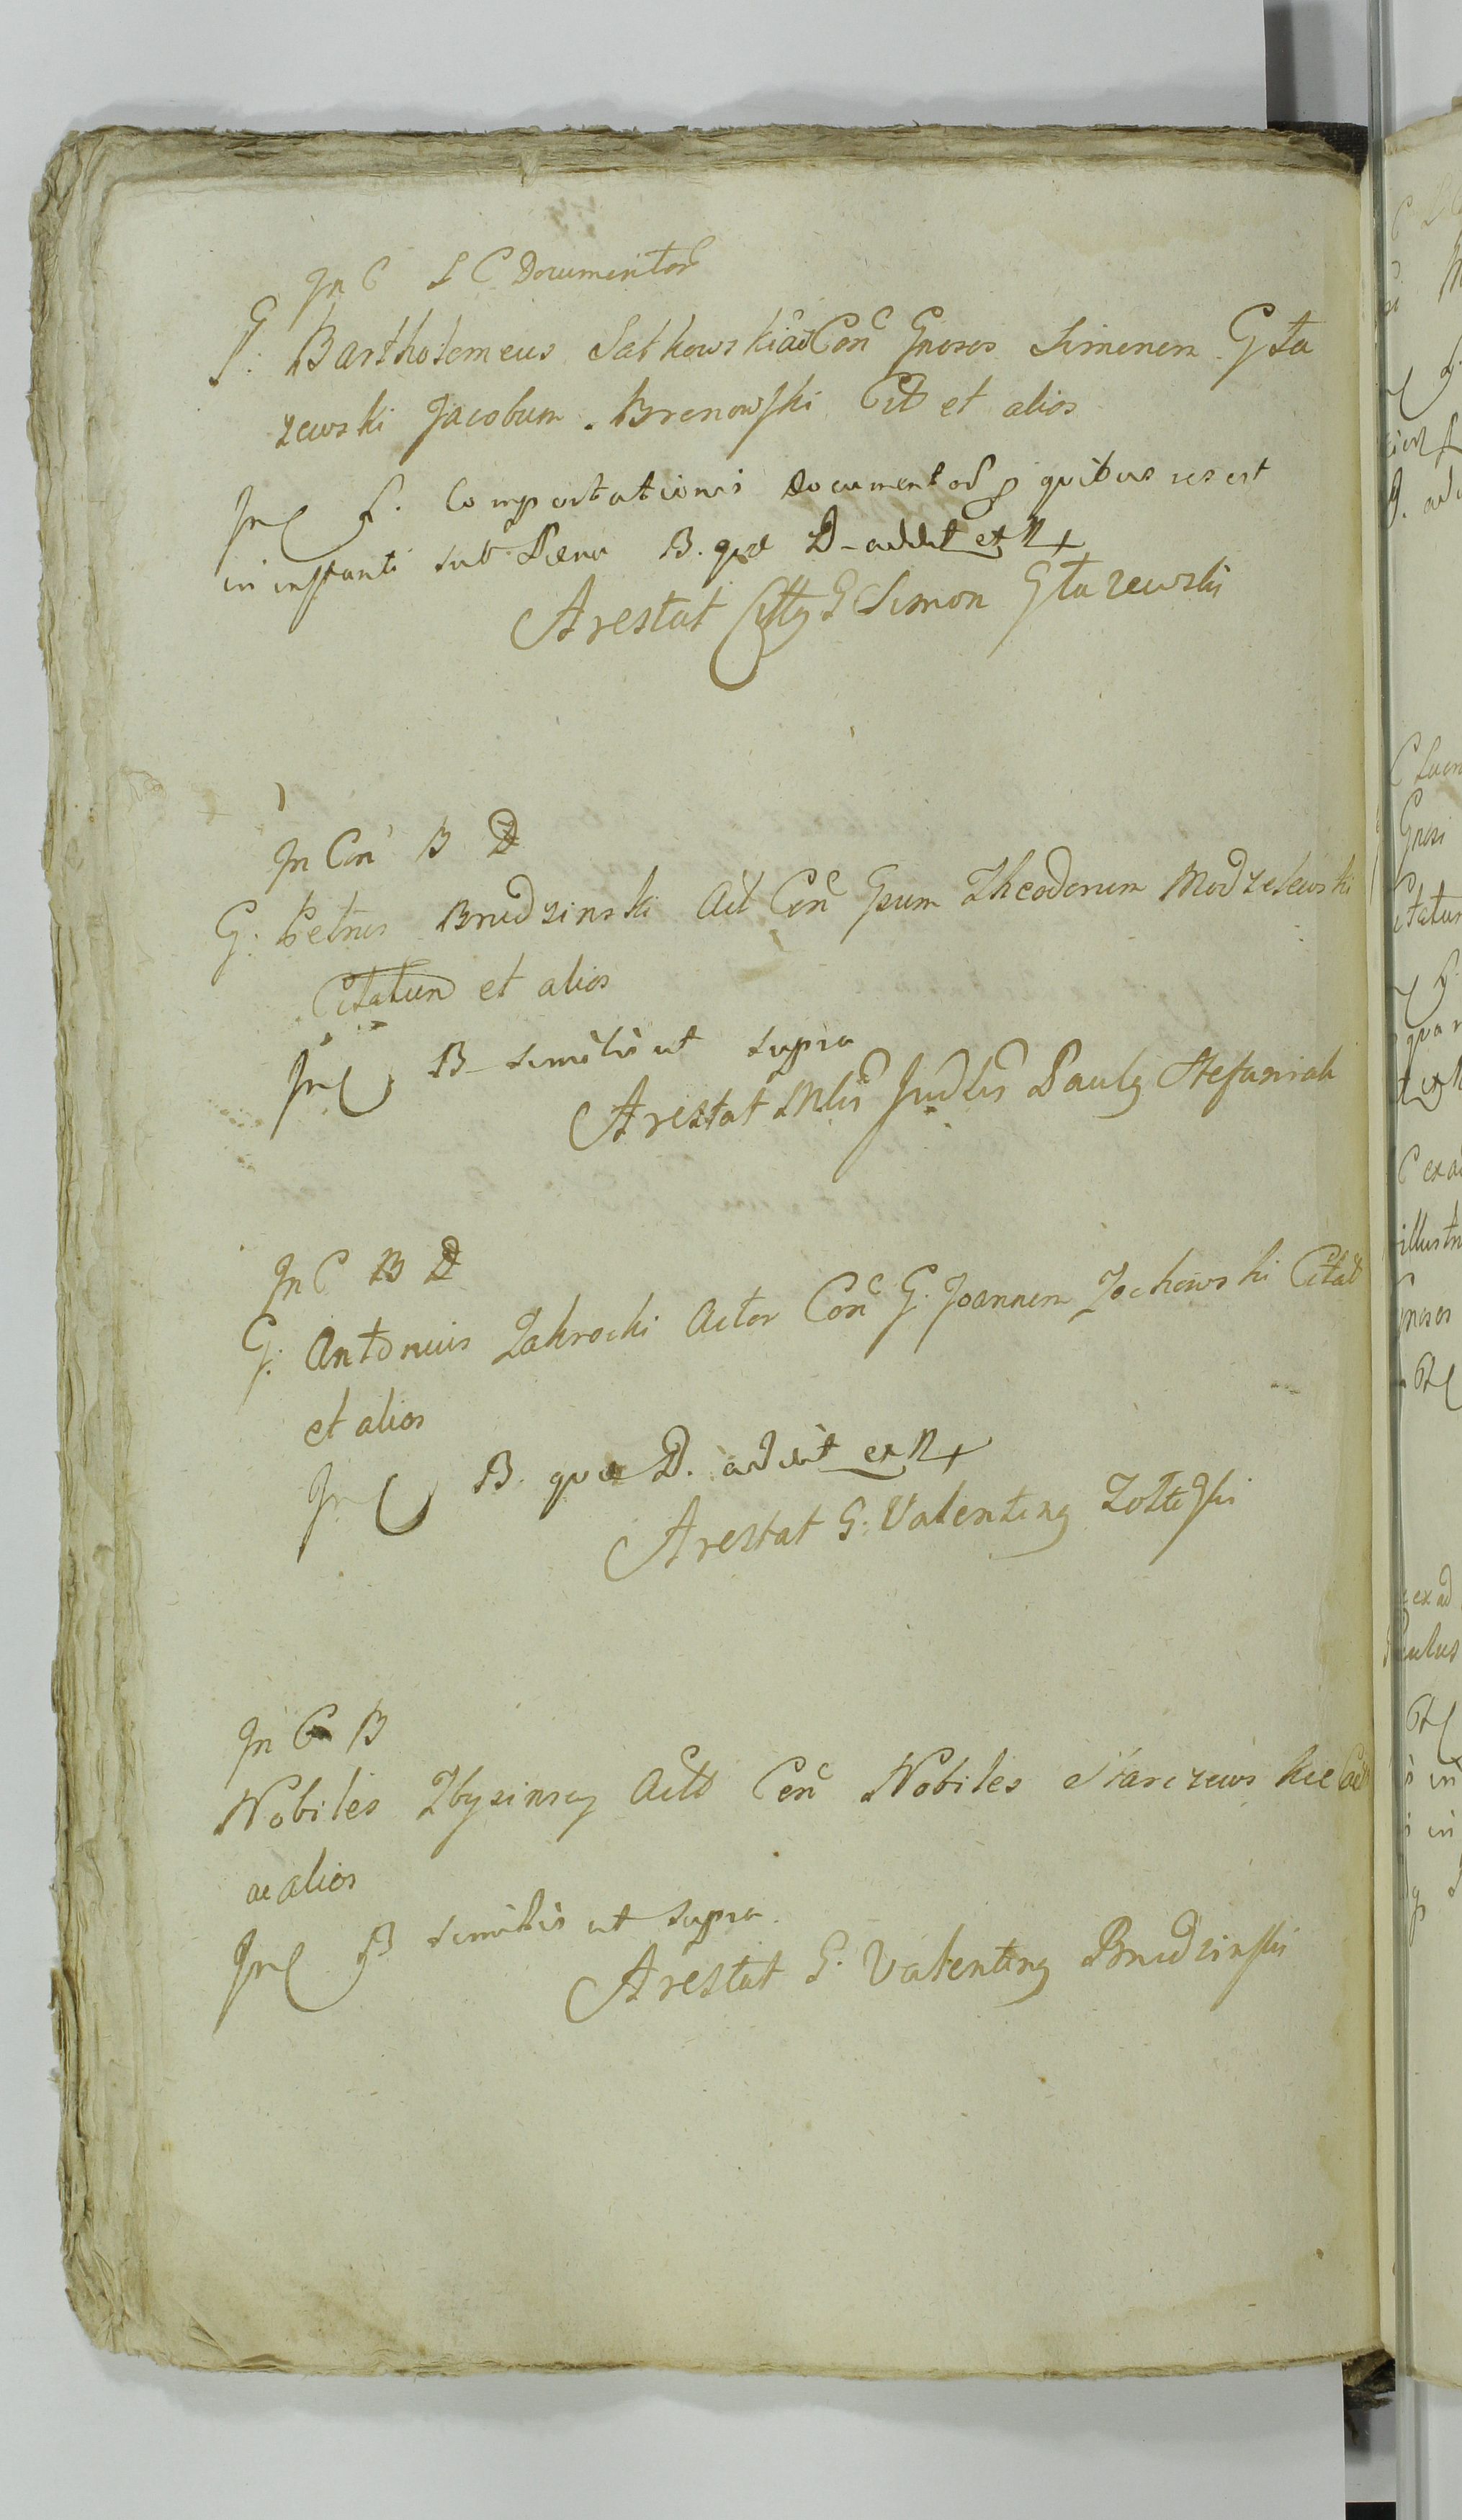 In C L C Documentor
G: Bartholomeus Satkowski act Con Gnosos Simonem Gła
zewski Jacobum Bronowski Cit et alios
In C f. Comportationis documentor de quibus res est
in instanti sub Paena B. quae D. addit et
Arestat Citty G Simon Głazewski
In Con B D
G: Petrus Brudzinski Act Con Gsum Theodorum Modzelewski
Citatum et alios
In C B similis ut supra
Arestat Mlis Judlis Pauly Stefaniak
In C B D
G: Antonius Zakrocki Actor Con G: Joannem Zochowski Citat
et alios
In C B. quae D. addit et
Arestat G: Valenting
In C B
Nobiles Zbysinscy Act Con Nobiles Starczewskie Cit
ac alios
In C B similis ut supra
Arestat G: Valenting Brudzinski